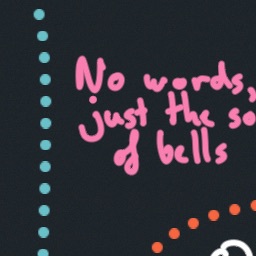 No words,
just the so
of bells